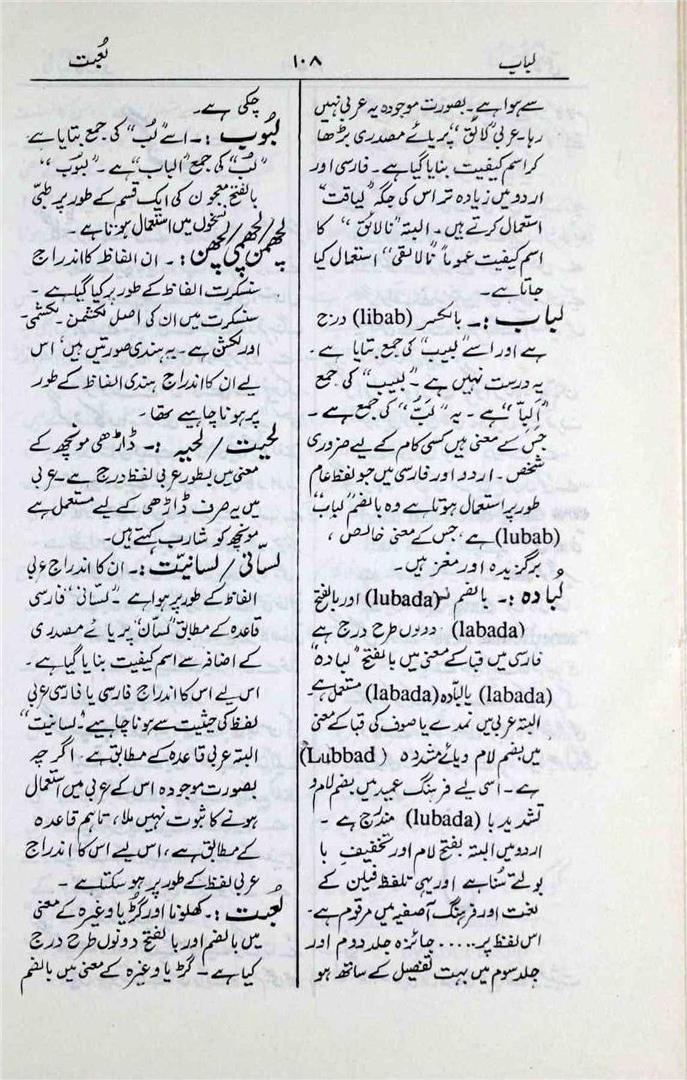 لباب ۱۰۸ لُعبت
سے ہوا ہے۔ بصورت موجودہ یہ عربی نہیں
رہا۔ عربی "لائق" پر یائے مصدری بڑھا
کر اسم کیفیت بنایا گیا ہے۔ فارسی اور
اردو میں زیادہ تر اس کی جگہ "لیاقت"
استعمال کرتے ہیں۔ البتہ "نالائق" کا
اسم کیفیت عموماً "نالائقی" استعمال کیا
جاتا ہے۔
لباب :۔ بالکسر (libab) درج
ہے اور اسے "لبیب" کی جمع بتایا ہے۔
یہ درست نہیں ہے۔ "لبیب" کی جمع
"الباّ" ہے۔ یہ "لبّ" کی جمع ہے۔
جس کے معنی ہیں کسی کام کے لیے ضروری
شخص۔ اردو اور فارسی میں جو لفظ عام
طور پر استعمال ہوتا ہے وہ بالضم "لباب"
(lubab) ہے، جس کے معنی خالص،
برگزیدہ اور مغز ہیں۔
لُبادہ :۔ بالضم (lubada) اور بالفتح
(labada) دونوں طرح درج ہے
فارسی میں قبا کے معنی میں بالفتح "لبادہ"
(labada) یا لبّادہ (labada) مستعمل ہے۔
البتہ عربی میں نمدے یا صوف کی قبا کے معنی
میں بضم لام و بائے مشددہ (Lubbad)
ہے۔ اسی لیے فرہنگ عمید میں بضم لام و
تشدید با (lubada) مندرج ہے۔
اردو میں البتہ بفتح لام اور تخفیف با
بولتے سُنا ہے اور یہی تلفظ فیلن کے
لغت اور فرہنگ آصفیہ میں مرقوم ہے۔
اس لفظ پر ..... جائزہ جلد دوم اور
جلد سوم میں بہت تفصیل کے ساتھ ہو
چکی ہے۔
لبُوب :۔ اسے "لُب" کی جمع بتایا ہے۔
"لب" کی جمع "الباب" ہے۔ "لبوب"
بالفتح معجون کی ایک قسم کے طور پر طبّی
نسخوں میں استعمال ہوتا ہے۔
لچھمن/لچھمی/لچھن :۔ ان الفاظ کا اندراج
سنسکرت الفاظ کے طور پر کیا گیا ہے۔
سنسکرت میں ان کی اصل لکشمن۔ لکشمی۔
اور لکشن ہے۔ یہ ہندی صورتیں ہیں، اس
لیے ان کا اندراج ہندی الفاظ کے طور
پر ہونا چاہیے تھا۔
لحیت/لحیہ :۔ ڈاڑھی مونچھ کے
معنی میں بطور عربی لفظ درج ہے۔ عربی
میں یہ صرف ڈاڑھی کے لیے مستعمل ہے
مونچھ کو شارب کہتے ہیں۔
لسّانی/لسانیت :۔ ان کا اندراج عربی
الفاظ کے طور پر ہوا ہے۔ "لسّانی" فارسی
قاعدہ کے مطابق "لسّان" پر یائے مصدری
کے اضافہ سے اسم کیفیت بنایا گیا ہے۔
اس لیے اس کا اندراج فارسی یا فارسی عربی
لفظ کی حیثیت سے ہونا چاہیے "لسانیت"
البتہ عربی قاعدہ کے مطابق ہے۔ اگرچہ
بصورت موجودہ اس کے عربی میں استعمال
ہونے کا ثبوت نہیں ملا، تاہم قاعدہ
کے مطابق ہے، اس لیے اس کا اندراج
عربی لفظ کے طور پر ہو سکتا ہے۔
لُعبت :۔ کھلونا اور گڑیا وغیرہ کے معنی
میں بالضم اور بالفتح دونوں طرح درج
کیا ہے۔ گڑیا وغیرہ کے معنی میں بالضم